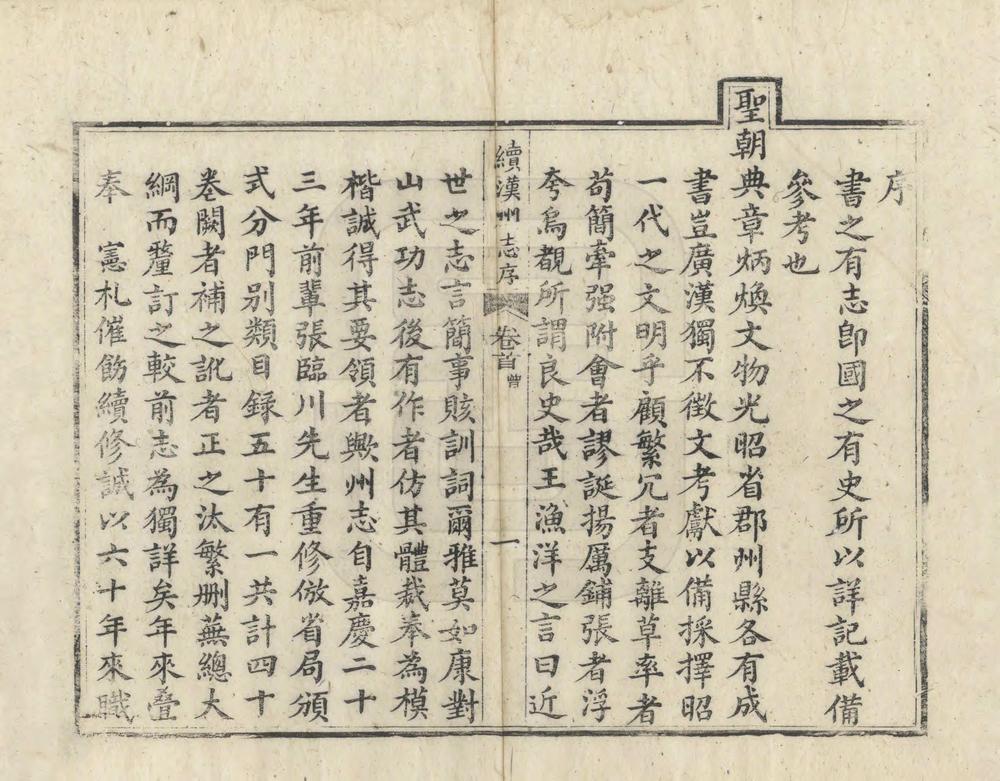 序
書之有志卽國之有史所以詳記載備
參考也
聖朝典章炳煥文物光昭省郡州縣各有成
書豈廣漢獨不徵文考獻以備採擇昭
一代之文明乎顧繁冗者支離草率者
苟簡牽强附會者謬誕揚厲鋪張者浮
夸烏覩所謂良史哉王漁洋之言曰近
續漢州志序 卷首 曾 一
世之志言簡事賅訓詞爾雅莫如康對
山武功志後有作者仿其體裁奉為模
楷誠得其要領者歟州志自嘉慶二十
三年前輩張臨川先生重修倣省局頒
式分門别類目録五十有一共計四十
卷闕者補之訛者正之汰繁删蕪總大
綱而釐訂之較前志為獨詳矣年來疊
奉 憲札催飭續修誠以六十年來職